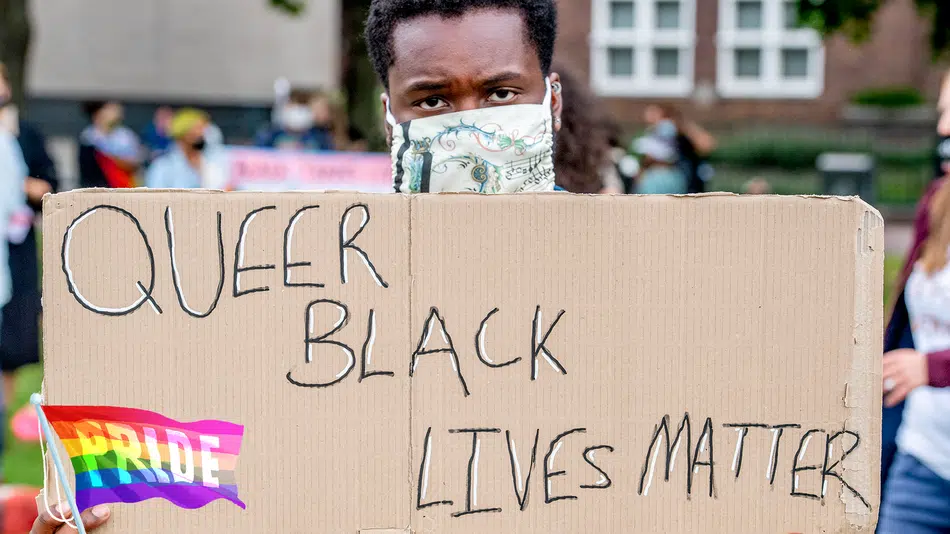 QUEER
BLACK
LIVES MATTER
PRIDE